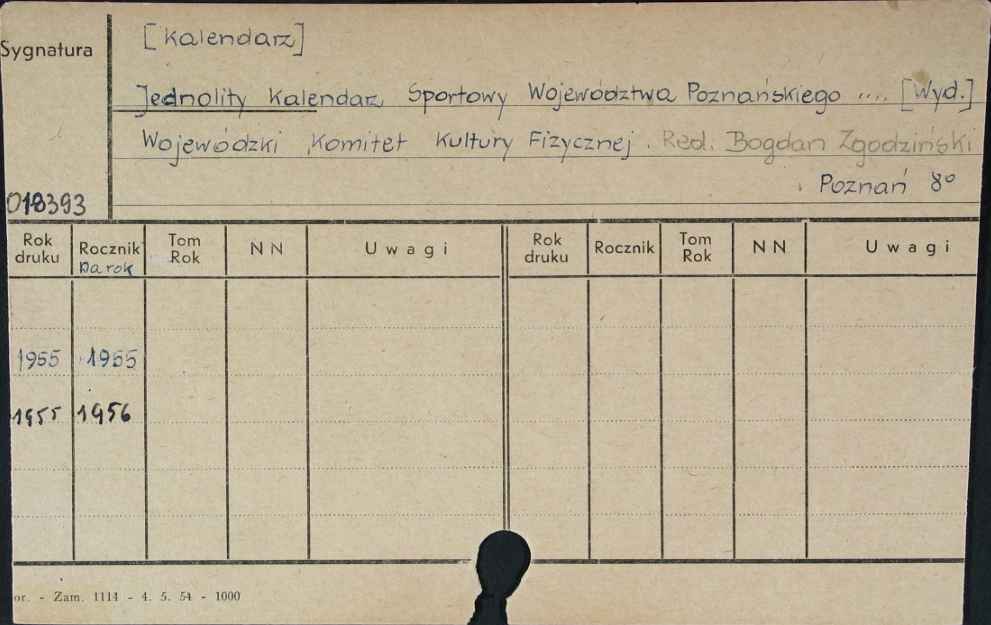 [Kalendarz]
Sygnatura
Jednolity Kalendarz Sportowy Województwa Poznańskiego .... [Wyd.]
Wojewódzki Komitet Kultury Fizycznej. Red. Bogdan Zgodziński
Poznań 8°
018393
Rok druku Rocznik Tom Rok N N Uwagi Rok druku Rocznik Tom Rok N N Uwagi
na rok
1955 1955
1955 1956
or. - Zam. 1114 - 4. 5. 54 - 1000